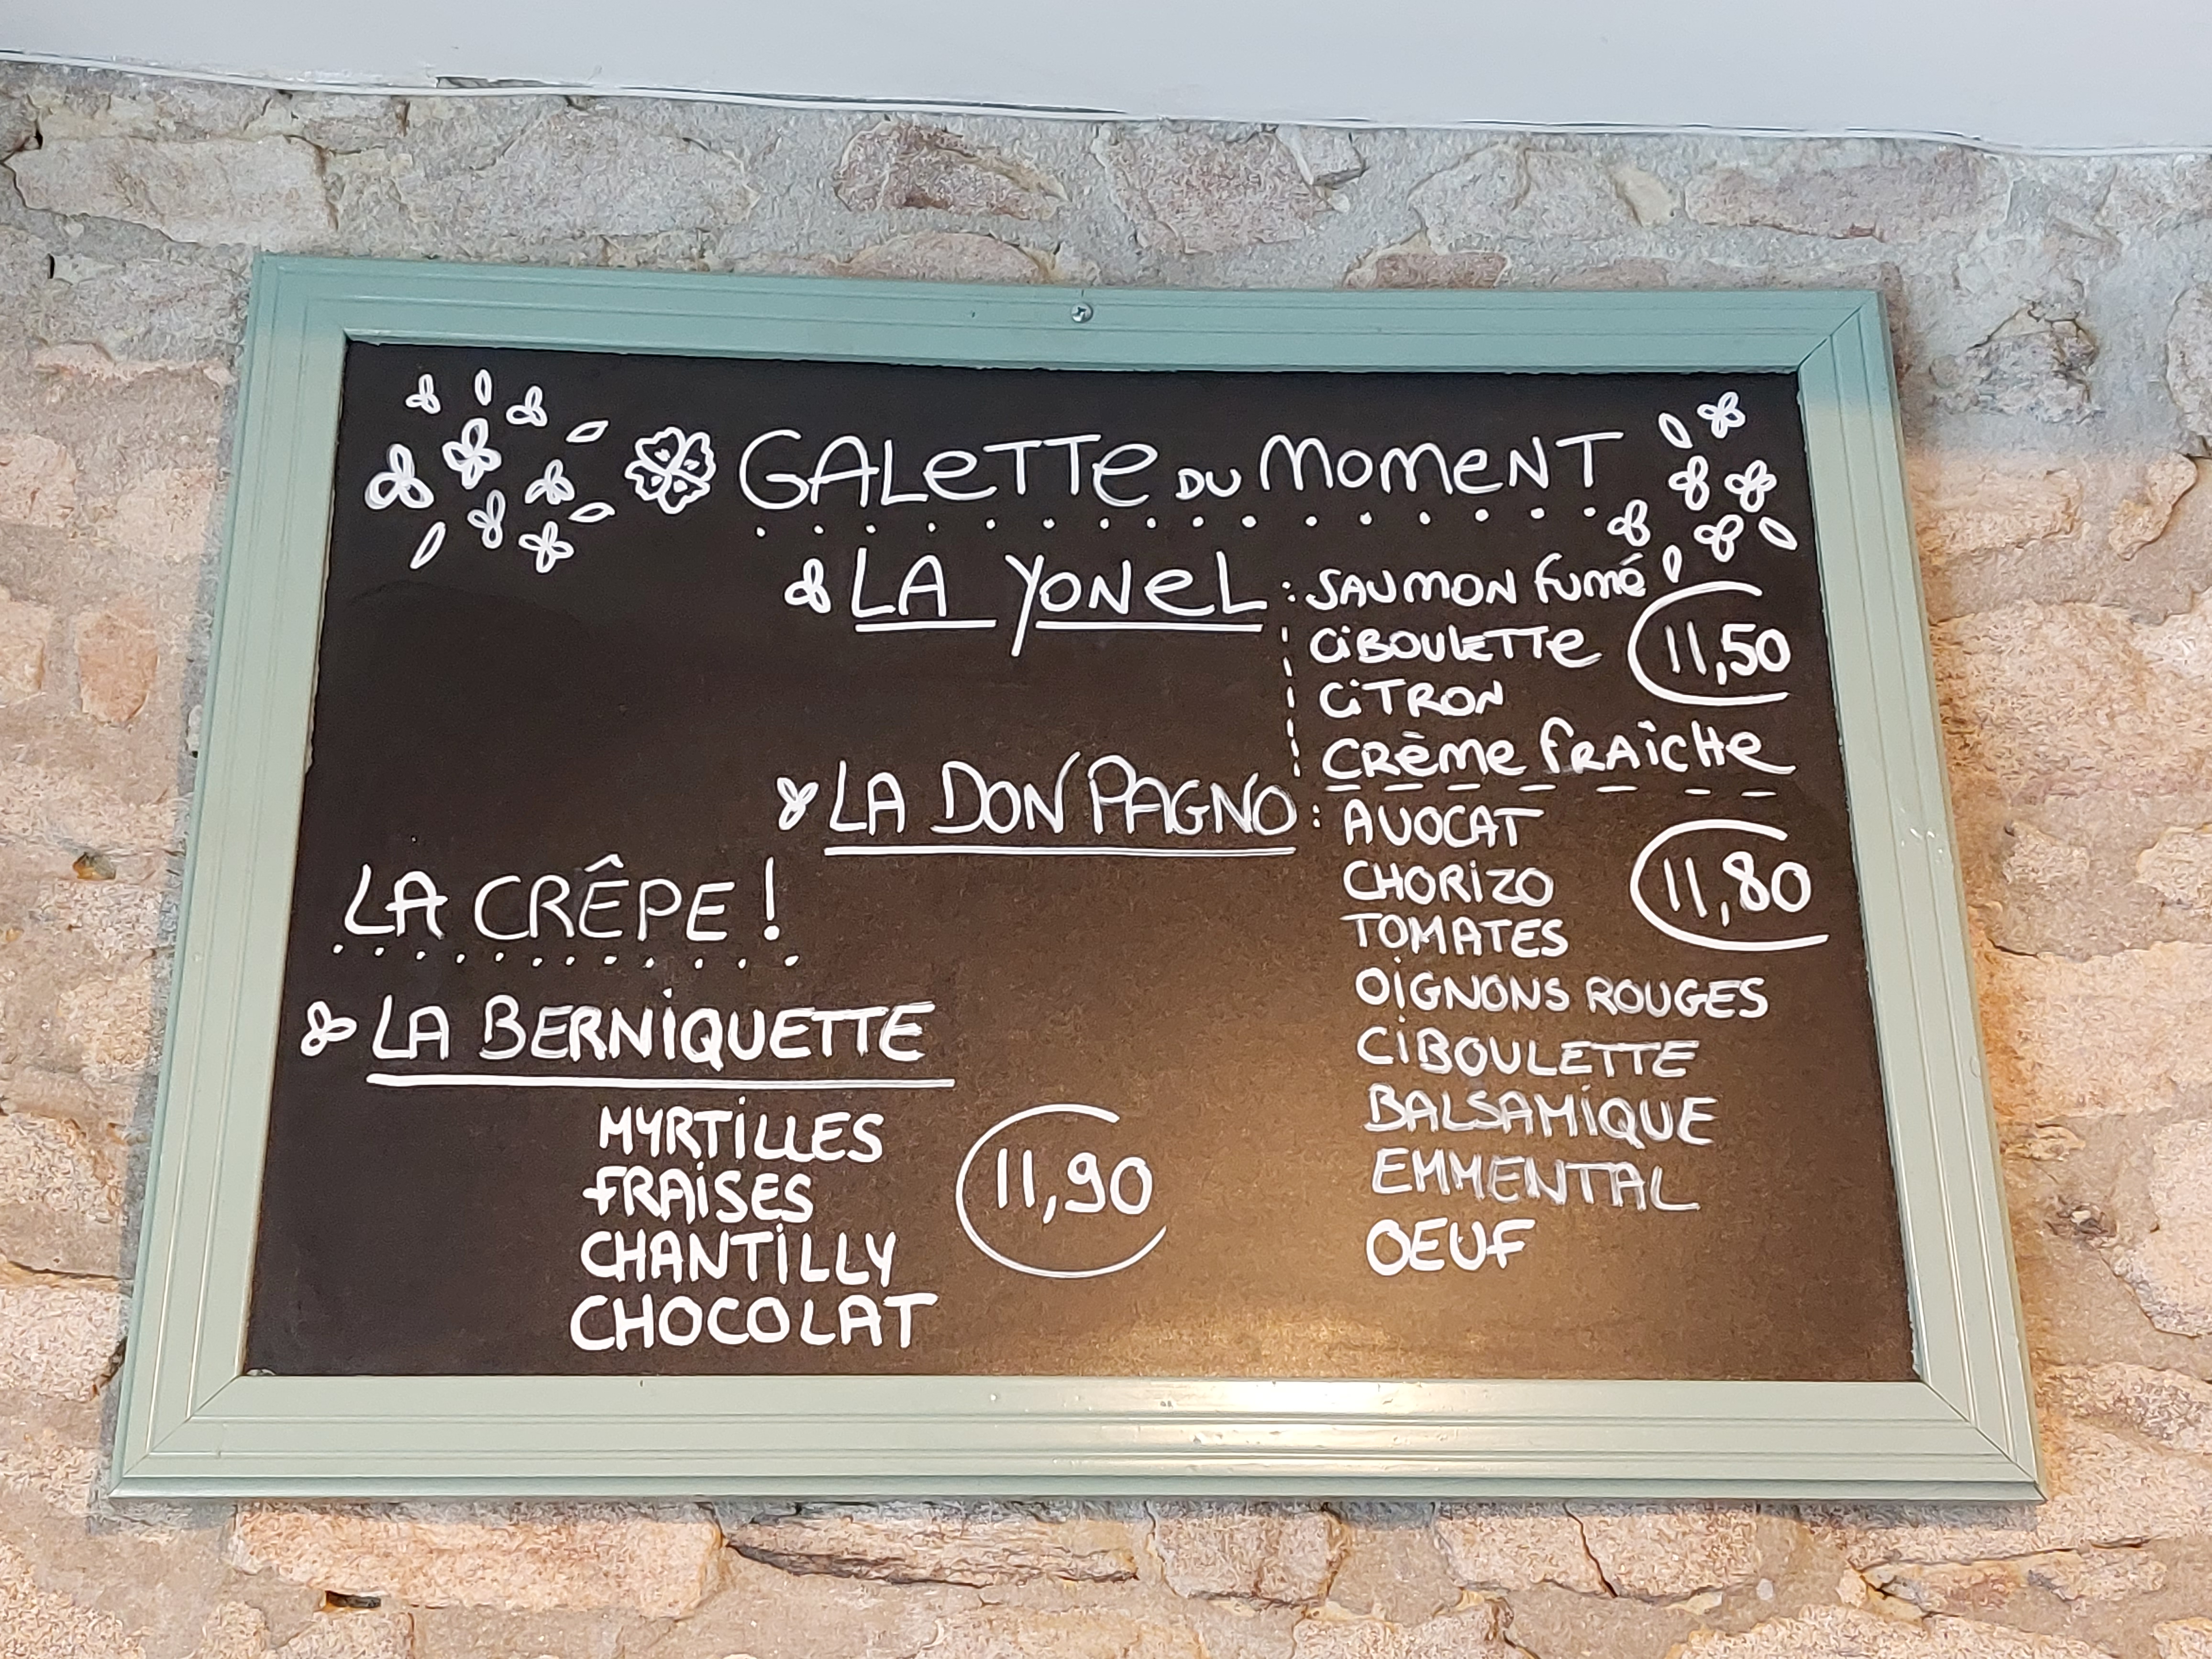 GALETTE DU MOMENT
LA YONEL : SAUMON FUMÉ
CIBOULETTE 11,50
CITRON
CRÈME FRAÎCHE
LA DON PAGNO : AVOCAT
CHORIZO 11,80
TOMATES
OIGNONS ROUGES
CIBOULETTE
BALSAMIQUE
EMMENTAL
OEUF
LA CRÊPE !
LA BERNIQUETTE
MYRTILLES
FRAISES 11,90
CHANTILLY
CHOCOLAT